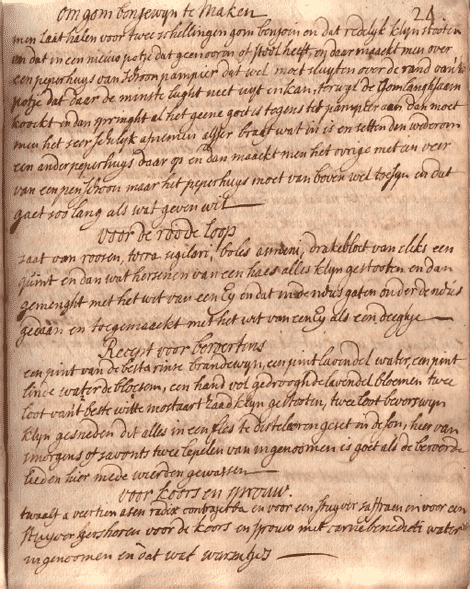 om gom bensewyn te maken
24
men laat halen voor twee schellingen gom benjoin en dat redelyk klyn stooten
en dat in een nieuw potje dat geen ooren of steel heeft, en daer maackt men over
een peperhuys van schoon pampier dat wel moet sluyten over de rand van't
potje dat daer de minste lught niet uyt en kan, terwyl de gom langhsaem
koockt en dan springht al het geene goet is tegens het pampier aen dan moet
men het seer schielyk afneemen alser braaf wat in is en setten dan wederom
een ander peperhuys daar op en dan maackt men het ovrige met een veer
van een pen schoon maar het peperhuys moet van boven wel toesyn en dat
gaet soo lang als wat geven wil
voor de roode loop
zaat van roosen, terra sigilori, boles armeni, drakebloet van elks een
quint en dan wat hersenen van een haes alles klyn gestooten en dan
gemenght met het wit van een Ey en dat in de neus gaten onder de neus
gedaan en toegemaackt met het wit van een Ey als een deegje
Recept voor beroertens
een pint van de beste rinse brandewyn, een pint lavendel water, een pint
linde water de bloesem, een hand vol gedrooghde lavendel bloemen twee
loot van't beste witte mostaart zaad klyn gestooten, twee loot beverswyn
klyn gesneden dit alles in een fles te distelleren geset in de son, hier van
smorgens of savonts twee lepelen van ingenoomen is goet als de beroerde
lieden hier mede werden gewassen
voor koors en sprouw.
twaelf a veertien aten radix contrajerba en voor een stuyver saffraen in voor een
stuyver hershoren voor de koors en sprouw met carnebenedicti water
ingenoomen en dat wat warmtjes